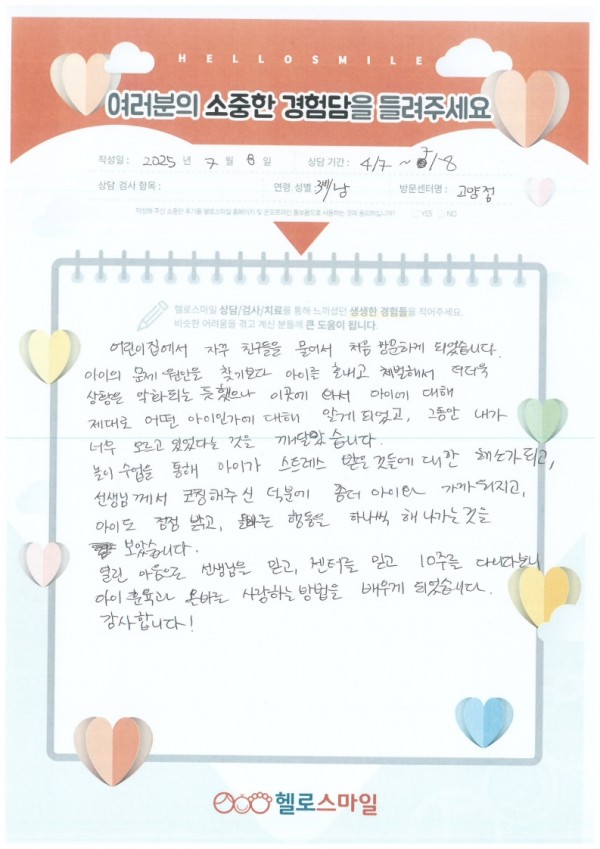 HELLOSMILE
여러분의 소중한 경험담을 들려주세요
작성일 : 2025 년 7 월 8 일 상담 기간 : 4/7 ~ 7/8
상담 검사 항목 : 연령 성별 3세/남 방문센터명 : 고양점
작성해 주신 소중한 후기를 헬로스마일 홈페이지 및 온오프라인 홍보물으로 사용하는 것에 동의하십니까? YES NO
헬로스마일 상담/검사/치료를 통해 느끼셨던 생생한 경험들을 적어주세요.
비슷한 어려움을 겪고 계신 분들께 큰 도움이 됩니다.
어린이집에서 자꾸 친구들을 물어서 처음 방문하게 되었습니다.
아이의 문제 원인을 찾기보다 아이를 혼내고 체벌해서 더더욱
상황은 악화되는 듯했으나 이곳에 와서 아이에 대해
제대로 어떤 아이인가에 대해 알게 되었고, 그동안 내가
너무 모르고 있었다는 것을 깨달았습니다.
놀이 수업을 통해 아이가 스트레스 받을것들에 대한 해소가 되고,
선생님께서 코칭해주신 덕분에 좀더 아이와 가까워지고,
아이도 점점 밝고, 올바른 행동을 하나씩 해 나가는것을
보았습니다.
열린 마음으로 선생님을 믿고, 센터를 믿고 10주를 다니다보니
아이 훈육과 올바로 사랑하는 방법을 배우게 되었습니다.
감사합니다!
헬로스마일